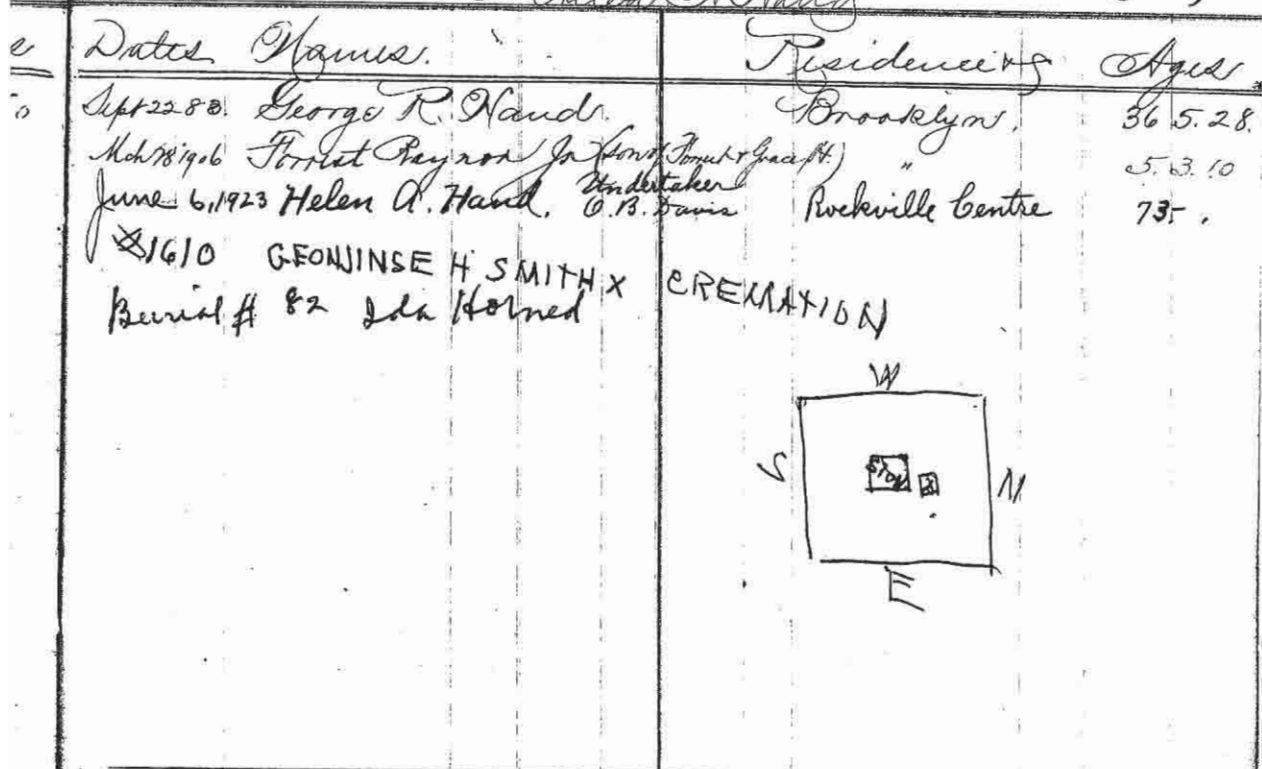 Dates Names. Residence &c Ages
Sept 22 83. George R. Hand. Brooklyn. 36 5.28.
Mch 1906 Forrest Raynor Jr (son of Forrest & Grace H.) " 5.3.10
June 6, 1923 Helen A. Hand. Undertaker O.B. Davis Rockville Centre 75.
1610 H SMITH X CREMATION
Burial # 82 Ida Horned
W
S STON X N
E